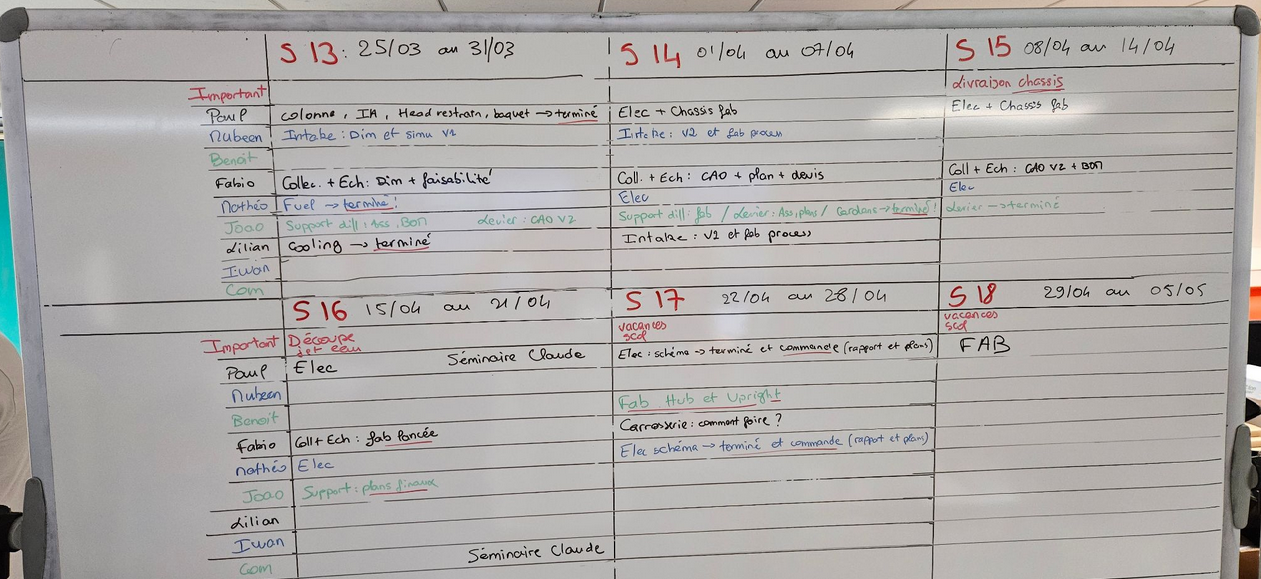 S 13 : 25/03 au 31/03 S 14 01/04 au 07/04 S 15 08/04 au 14/04
Important Livraison chassis
Paul colonne, IA, Head restrain, baquet → terminé Elec + Chassis fab Elec + Chassis fab
Nubeen Intake : Dim et simu V1 Intake : V2 et fab process
Benoit
Fabio Collec. + Ech : Dim + faisabilité Coll. + Ech : CAO + plan + devis Coll + Ech : CAO V2 + BOM
Mathéo Fuel → terminé ! Elec Elec
Joao Support diff : Ass, BOM Levier : CAO V2 Support diff : fab / Levier : Ass, plans / Cardans → terminé ! Levier → terminé
Lilian Cooling → terminé Intake : V2 et fab process
Iwan
Com
S 16 15/04 au 21/04 S 17 22/04 au 28/04 S 18 29/04 au 05/05
Important Découpe jet eau vacances scol vacances scol
Paul Elec Séminaire Claude Elec : schéma → terminé et commande (rapport et plans) FAB
Nubeen
Benoit Fab Hub et Upright
Fabio Coll + Ech : fab lancée Carrosserie : comment faire ?
Mathéo Elec Elec schéma → terminé et commande (rapport et plans)
Joao Support : plans finaux
Lilian
Iwan Séminaire Claude
Com